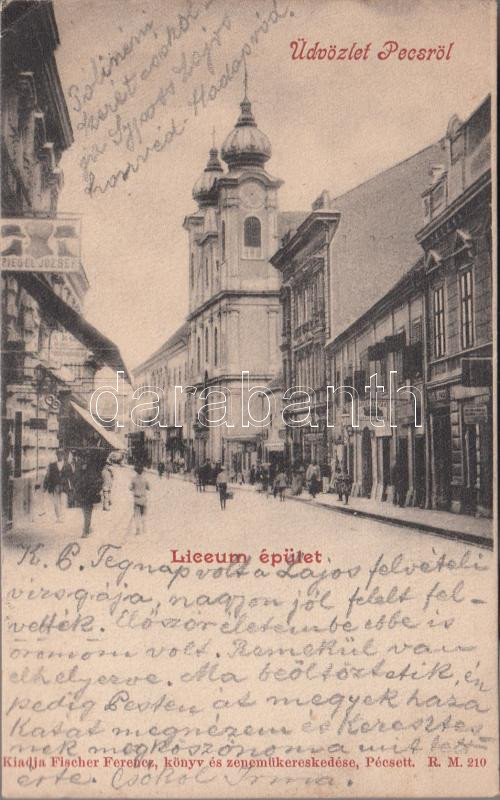 Üdvözlet Pecsröl
Polinéni
szeret csókol
Lajos
honvéd-Hadapród.
RIEGEL JÓZSEF
darabanth
Liceum épület
K. P. Tegnap volt a Lajos felvételi
vizsgája, nagyon jól felelt fel-
vették. Először életembe ebbe is
örömöm volt. Remekül van
elhelyezve. Ma beöltöztetik, én
pedig Pesten át megyek haza
Katát megnézem és Keresztes
nek megköszönöm a mit tett
érte. Csókol Irma.
Kiadja Fischer Ferencz, könyv és zeneműkereskedése, Pécsett. R. M. 210